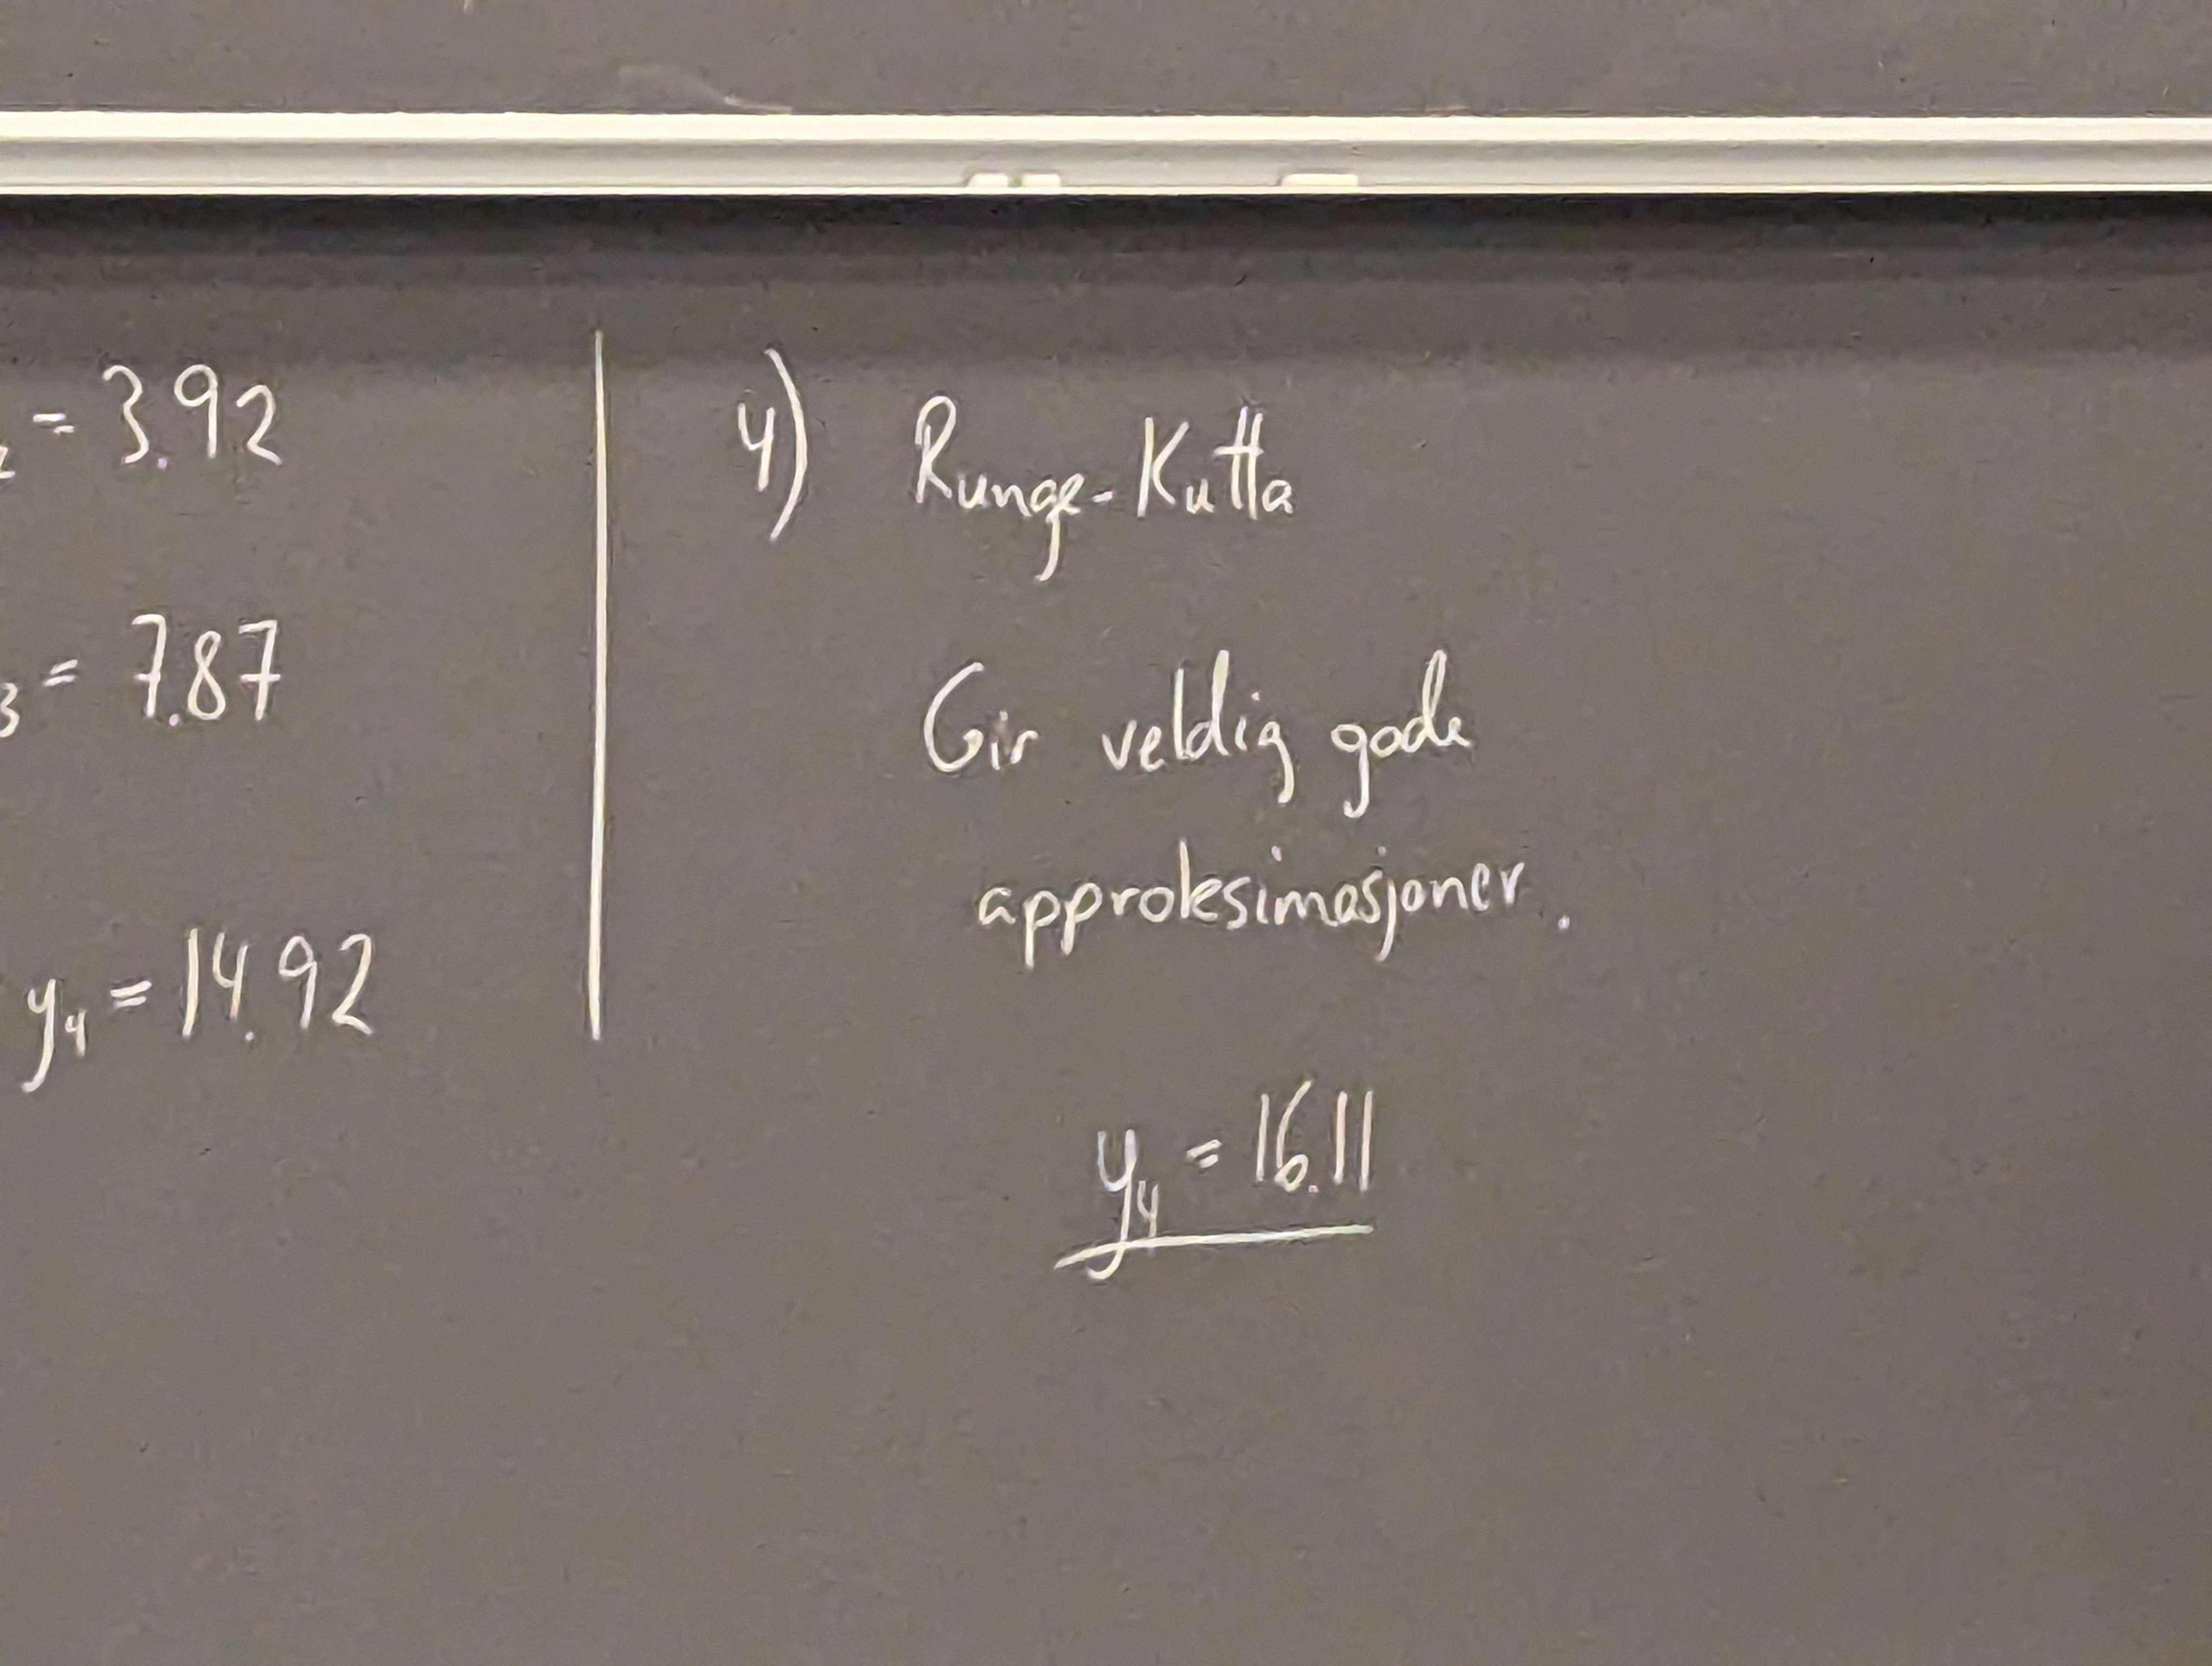 ₂ = 3.92
₃ = 7.87
y₄ = 14.92
4) Runge-Kutta
Gir veldig gode
approksimasjoner.
y₄ = 16.11